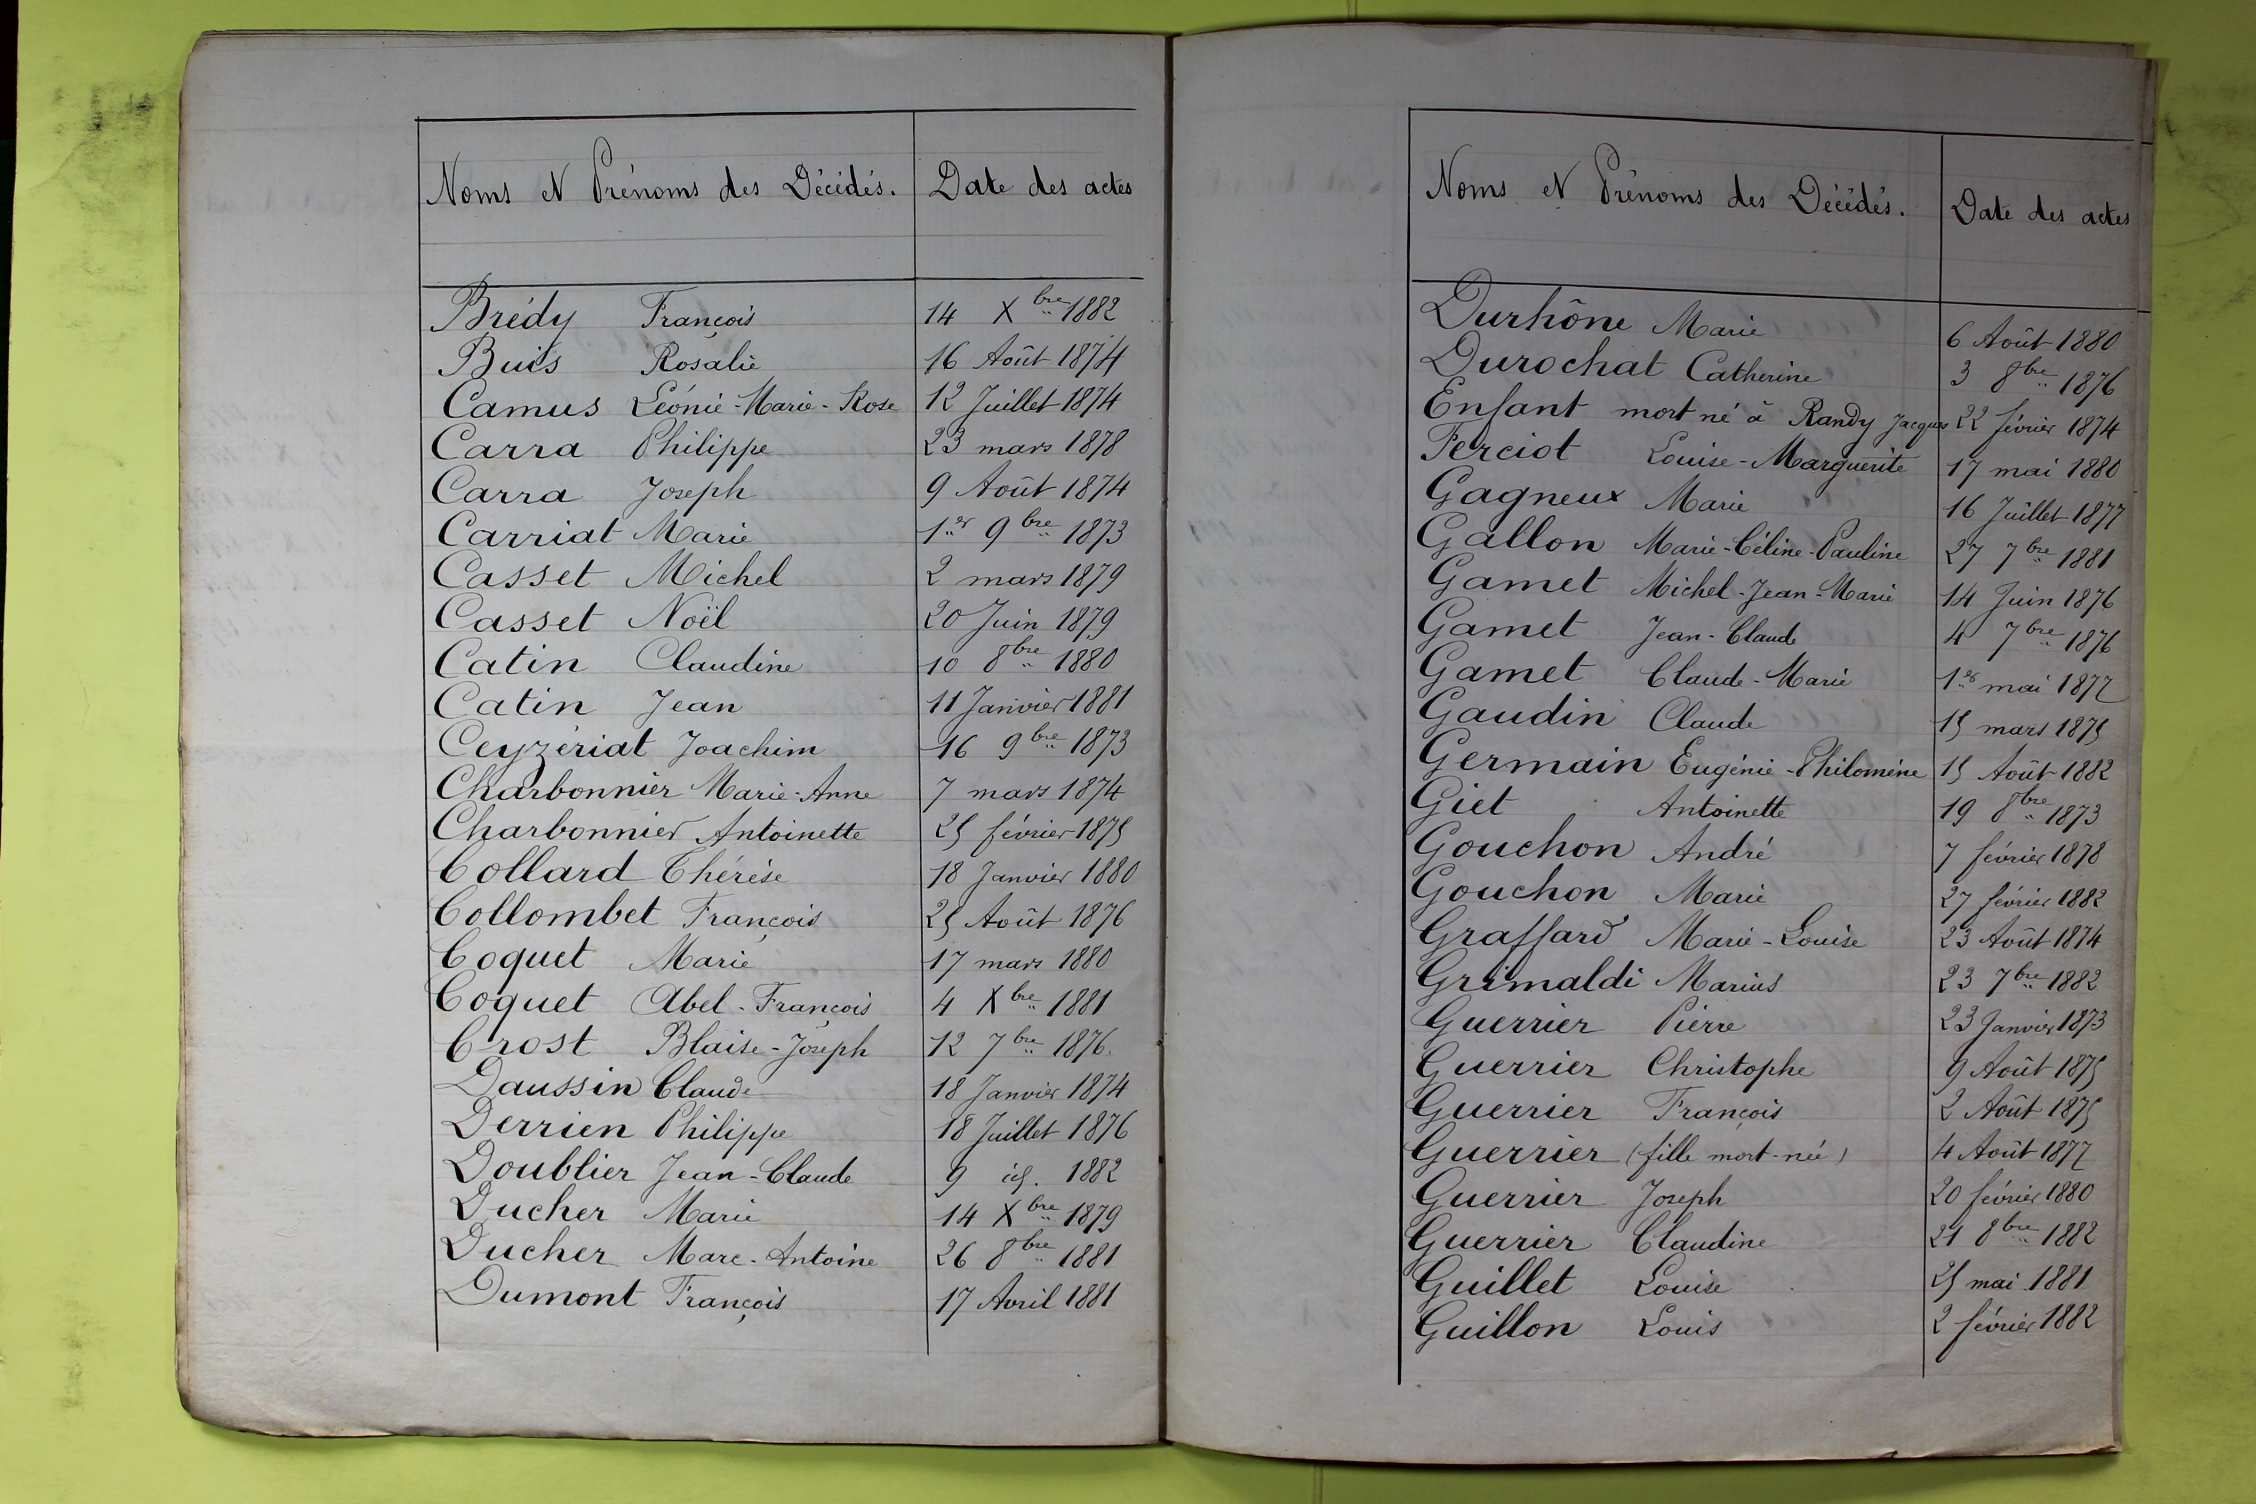 Noms et Prénoms des Décédés. Date des actes
Brédy François 14 Xbre 1882
Buis Rosalie 16 Août 1874
Camus Léonie-Marie-Rose 12 Juillet 1874
Carra Philippe 23 mars 1878
Carra Joseph 9 Août 1874
Carriat Marie 1er 9bre 1873
Casset Michel 2 mars 1879
Casset Noël 20 Juin 1879
Catin Claudine 10 8bre 1880
Catin Jean 11 Janvier 1881
Ceyzériat Joachim 16 9bre 1873
Charbonnier Marie-Anne 7 mars 1874
Charbonnier Antoinette 25 février 1875
Collard Thérèse 18 Janvier 1880
Collombet François 25 Août 1876
Coquet Marie 17 mars 1880
Coquet Abel-François 4 Xbre 1881
Crost Blaise-Joseph 12 7bre 1876.
Daussin Claude 18 Janvier 1874
Derrien Philippe 18 Juillet 1876
Doublier Jean-Claude 9 id. 1882
Ducher Marie 14 Xbre 1879
Ducher Marc-Antoine 26 8bre 1881
Dumont François 17 Avril 1881
Noms et Prénoms des Décédés. Date des actes
Durhône Marie 6 Août 1880
Durochat Catherine 3 8bre 1876
Enfant mort né à Randy Jacques 22 février 1874
Ferciot Louise-Marguerite 17 mai 1880
Gagneux Marie 16 Juillet 1877
Gallon Marie-Céline-Pauline 27 7bre 1881
Gamet Michel-Jean-Marie 14 Juin 1876
Gamet Jean-Claude 4 7bre 1876
Gamet Claude-Marie 1er mai 1877
Gaudin Claude 15 mars 1875
Germain Eugénie-Philomène 15 Août 1882
Giet Antoinette 19 8bre 1873
Gouchon André 7 février 1878
Gouchon Marie 27 février 1882
Graffard Marie-Louise 23 Août 1874
Grimaldi Marius 23 7bre 1882
Guerrier Pierre 23 Janvier 1873
Guerrier Christophe 9 Août 1875
Guerrier François 2 Août 1875
Guerrier (fille mort-née) 4 Août 1877
Guerrier Joseph 20 février 1880
Guerrier Claudine 21 8bre 1882
Guillet Louise 25 mai 1881
Guillon Louis 2 février 1882